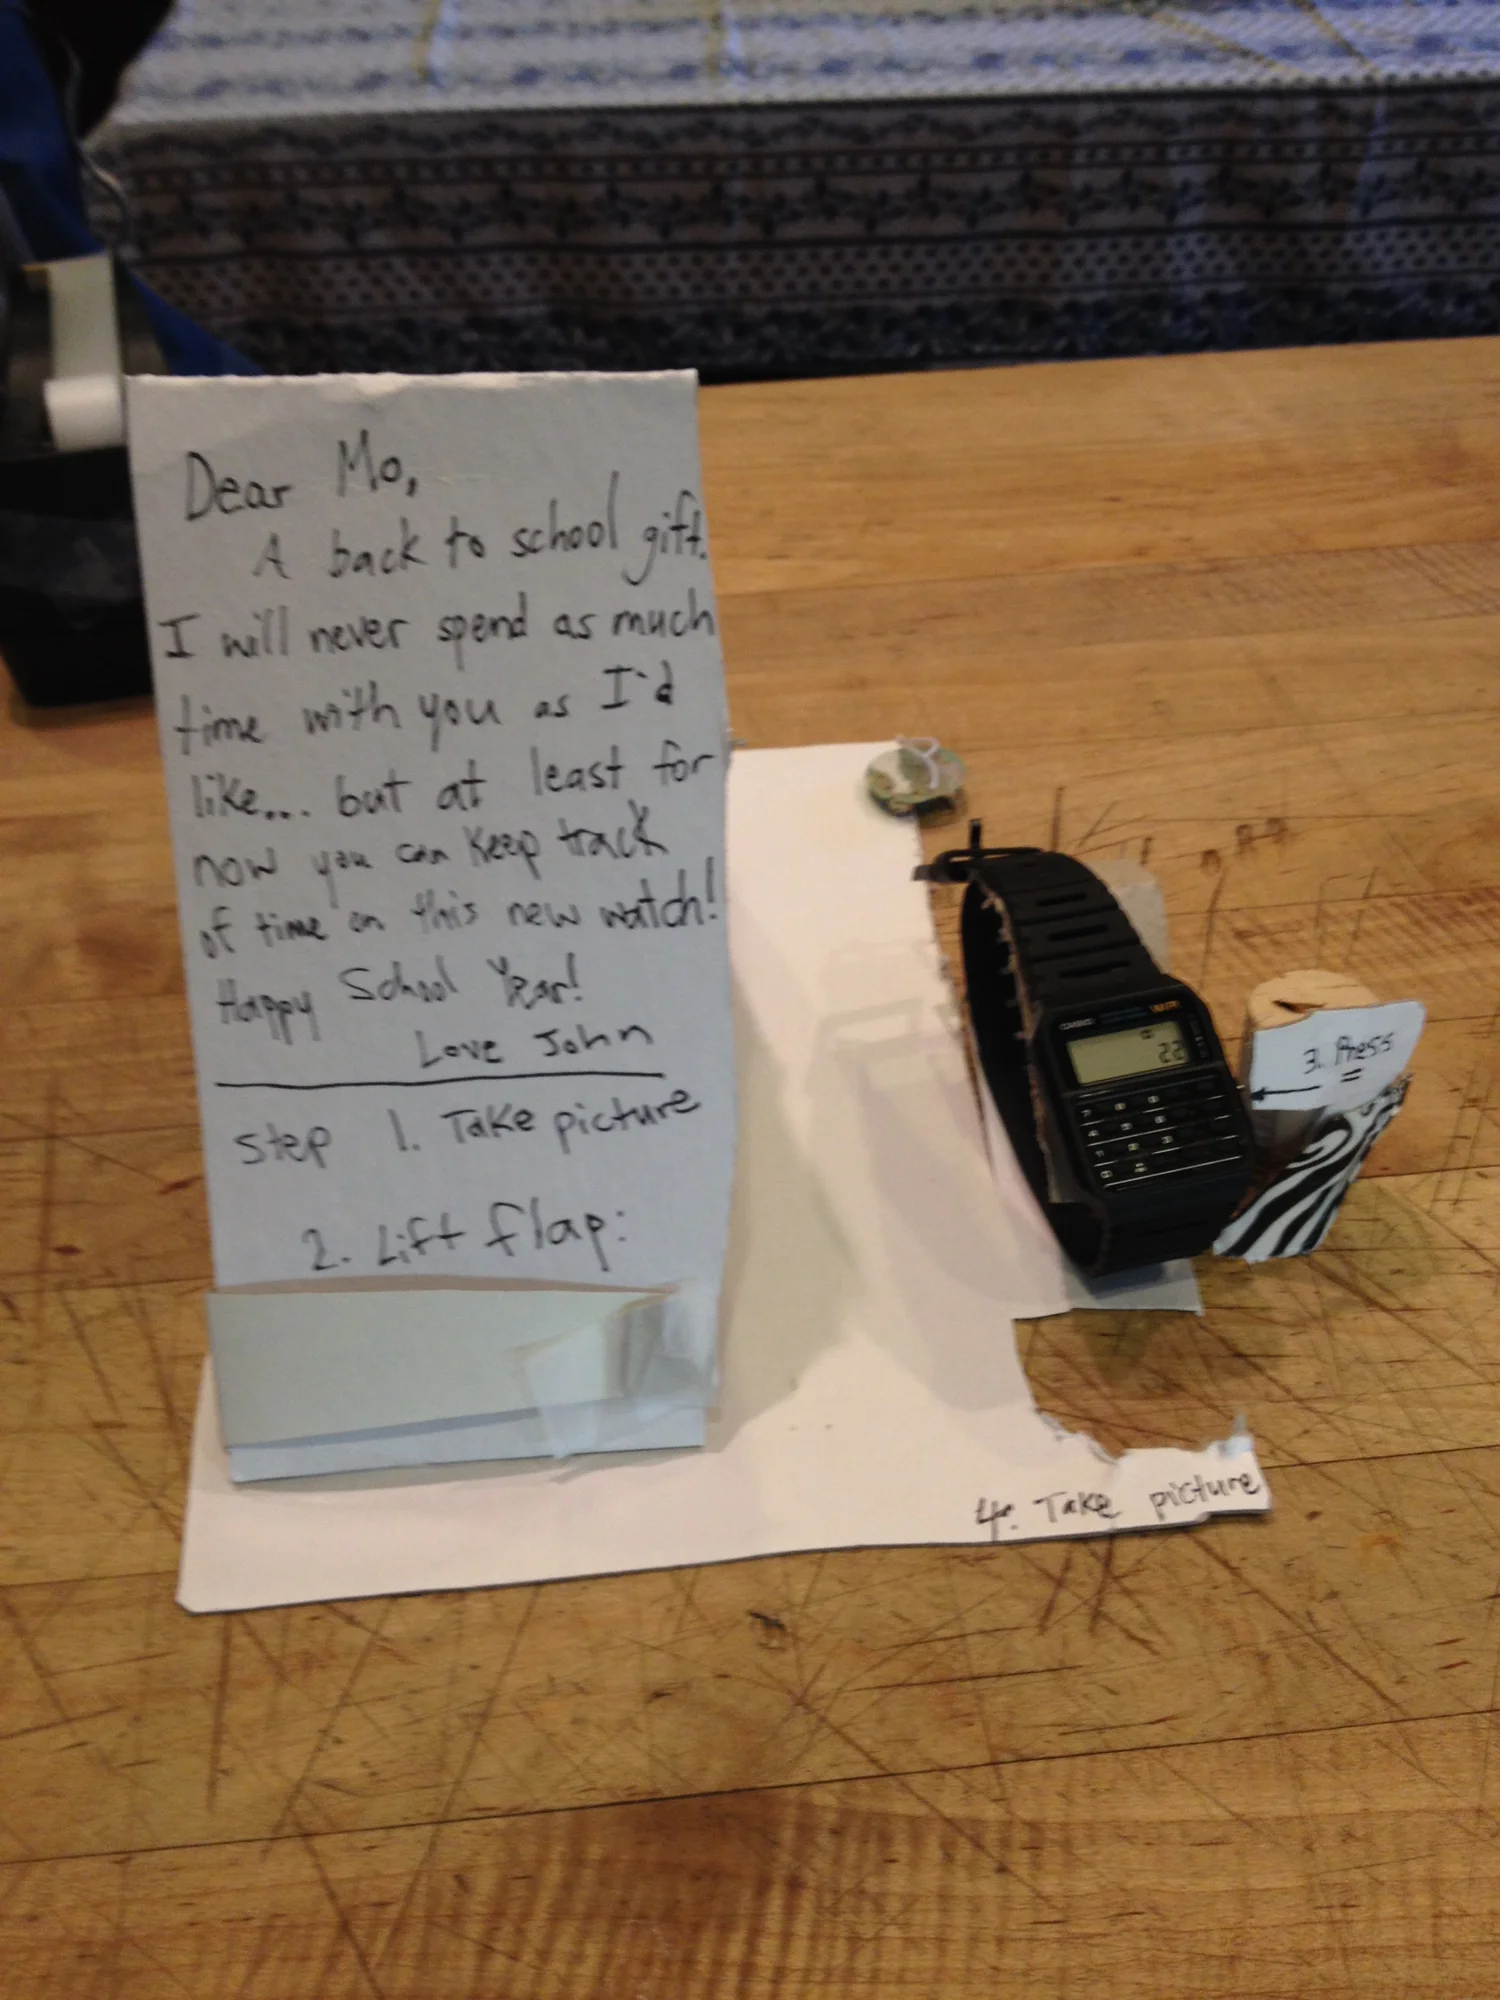 Dear Mo,
A back to school gift.
I will never spend as much
time with you as I'd
like... but at least for
now you can keep track
of time on this new watch!
Happy School Year!
Love John
Step 1. Take picture
2. Lift flap:
3. Press
=
4. Take picture
CASIO
22